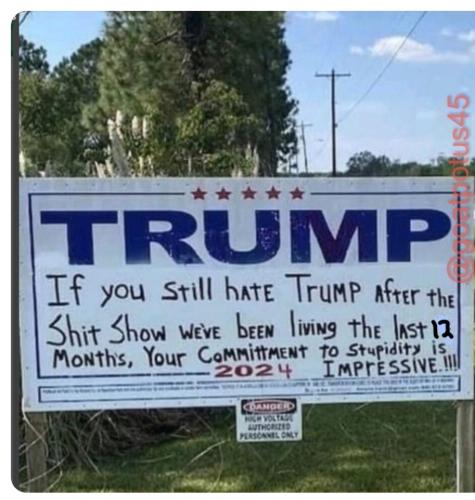 TRUMP
If you still hate Trump After the
Shit Show we've been living the last 12
Months, Your Committment to Stupidity is
2024 IMPRESSIVE.!!!
DANGER
HIGH VOLTAGE
AUTHORIZED
PERSONNEL ONLY
@poatpotus45